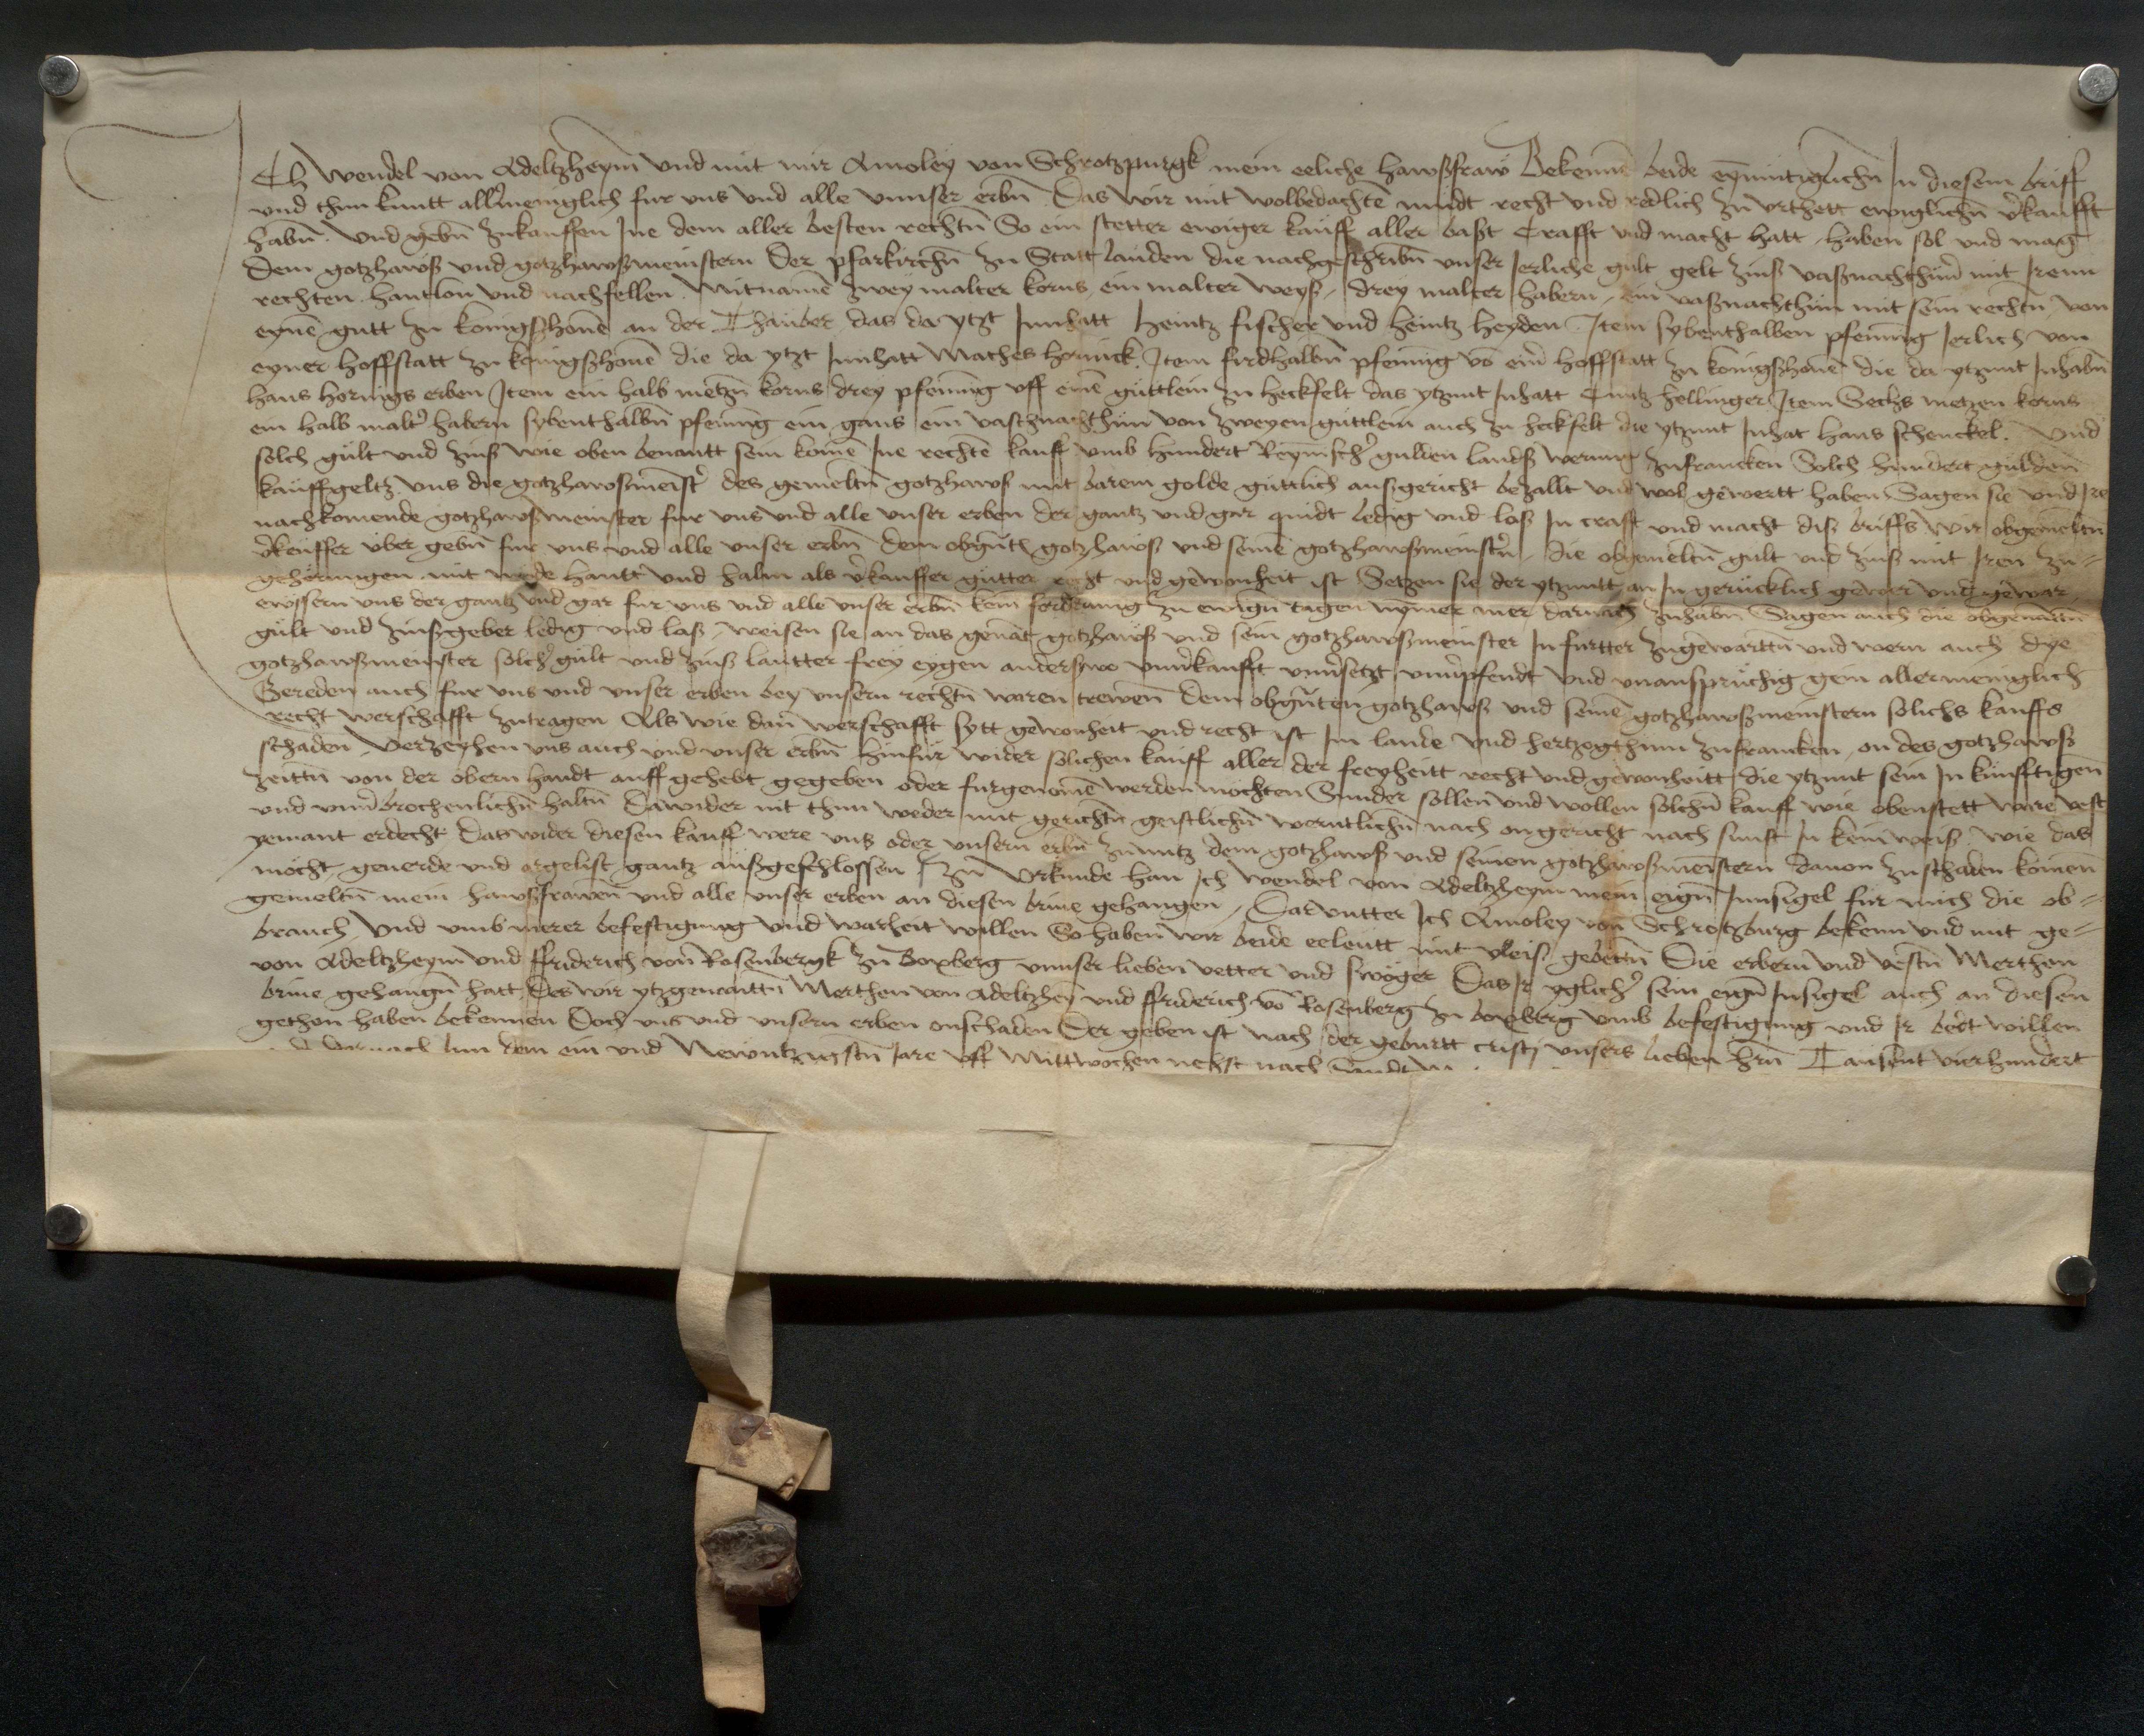 Ich Wendel von Adeltzheym vnd mit mir Amoley von Schrotzpurgk mein eeliche hawßfraw Bekennē beide eymütiglichn̄ In diesem briff
vnd thun kuntt allmeniglich fur vns vnd alle vnnser erbn̄ Das wir mit wolbedachtē mudt recht vnd redlich zu vrthett ewiglichn̄ v̓kaufft
habn̄ . Vnd gebn̄ zukauffen Ine dem aller besten rechtn̄ So ein stetter ewiger kauff aller baßt Crafft vnd macht hatt , haben sol vnd mag
Dem gotzhawß vnd gotzhawßmeinstern Der pfarkirchn̄ zu Statt lauden die nachgeschribn̄ vnser Jerliche gult gelt zinß vaßnachthūn mit Irenn
rechten hantlon vnd nachfellen . Mitnamē zwey malter korns ein malter weyß , drey malter habern , ein vaßnachthun mit sein rechtn̄ , von
eynē gutt zu konigßhouē an der Thauber das da ytzt Innhatt Heintz fischer vnd heintz heyden . Item sybenthalben pfennīg Jerlich von
eyner hoffstatt zu konigßhouē die da ytzt Innhatt Mathes hornick . Item firdhalbn̄ pfennīg vō einr̄ hoffstatt zu konigßhouē die da ytzunt Inhabn̄
hans hornigs erben Item ein halb metzn̄ korns drey pfennīg vff einē guttlein zu heckfelt das ytzunt Inhatt Cuntz hellinger Item Sechs metzen korns
ein halb malt̓ habern sybenthalbn̄ pfennīg ein gans ein vaschnachthūn von zweyen guttlein auch zu heckfelt die ytzunt Inhat hans schenckel . Vnd
solch gult vnd zinß wie oben benantt sein komē Ine rechtē kauff vmb hundert Reynisch̓ gulden landß werung zufrancken Solch hundert gulden
kauffgeltz vns die gotzhawsmeinst̓ des gemeltn̄ gotzhawß mit barem golde guttlich außgericht bezallt vnd wol gewertt haben Sagen sie vnd Ire
nachkomende gotzhawßmeinster fur vns vnd alle vnser erben der gantz vnd gar quidt ledig vnd loß In crafft vnd macht diß briffs Wir obgemeltn̄
v̓keuffer vber gebn̄ fur vns vnd alle vnser erbn̄ dem obgn̄tn̄ gotzhawß vnd seinē gotzhawßmeinst̓n , die obgemeltn̄ gult vnd zinß mit Iren zu-
gehorungen mit hantt vnd halm als v̓kauffter gutter recht vnd gewonheit ist Setzen sie der ytzuntt an In gerucklich gewer vnd gewar ,
ewssern vns der gantz vnd gar fur vns vnd alle vnser erbn̄ kein forderung zu ewign̄ tagen nymer mer darnach zuhabn̄ Sagen auch die obgenantn̄
gult vnd zinßgeber ledig vnd loß , weisen sie an das genāt gotzhawß vnd sein gotzhawßmeinster In furtter zugewarttn̄ vnd wern auch dye
gotzhawßmeinster solch̓ gult vnd zinß lautter frey eygen anderswo vnv̓kaufft vnv̓setzt vnv̓pfendt vnd vnanspruchig gein allermeniglich
Gereden auch fur vns vnd vnser erben bey vnsern rechtn̄ waren trewen dem obgn̄ten gotzhawß vnd seinē gotzhawßmeinstern solichs kauffs
recht werschafft zutragen Als wie dan̄ werschafft sytt gewonheit vnd recht ist Im lande vnd hertzogthum zufrancken , on des gotzhawß
schaden , Verzeyhen vns auch vnd vnser erbn̄ hinfur wider solichen kauff aller der freyheitt recht vnd gewonheitt die ytzunt sein In kunfftigen
zeittn̄ von der obern handt auffgehebt gegeben oder furgenomē werden mochten Sunder sollen vnd wollen solchn̄ kauff wie obenstett ware vest
vnd vnv̓brochenlichn̄ haltn̄ Dawider nit thun weder mit gerichtn̄ geistlichn̄ werntlichn̄ nach on gericht nach sunst In kein weiß wie das
yemant erdecht Das wider diesen kauff were vns oder vnsern erbn̄ zu nutz dem gotzhawß vnd seinen gotzhawßmeinstern dauon zu schaden komen
mocht geuerde vnd argelist gantz außgeschlossen Zu Vrkunde han Ich Wendel von Adeltzheym mein eygn̄ Innsigel fur mich die ob-
gemeltn̄ mein hawßfrawen vnd alle vnser erben an diesen briue gehangen , Dar vntter Ich Amoley von Schrotzburg bekenn vnd mit ge-
brauch Vnd vmb merer befestigung vnd warheit willen So haben wir beide eeleutt mit vleiß gebettn̄ Die erbern vnd vestn̄ Merthen
von Adeltzheym vnd ffriderich von Rosenbergk zu Boxberg vnnser lieben vetter vnd swoger Das Ir yglich̓ sein eygn̄ Insigel auch an diesen
briue gehangn̄ hatt , Des wir ytzgenanttn̄ Merthen von Adeltzheȳ vnd ffriderich vō Rosenberg zu boxberg vmb befestigung vnd Ir bedt willen
gethon haben bekennen Doch vns vnd vnsern erben onschaden Der geben ist nach der geburtt cristi vnsers lieben hrn̄ Tausent vierhundert
vnd darnach Inn dem ein vnd Newntzigistn̄ Jare vff Mittwochen nehst nach Sandt